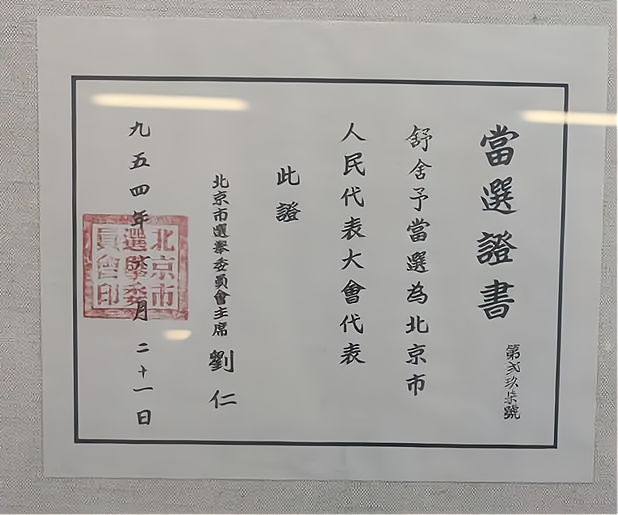 當選證書
第弍玖柒號
舒舍予當選為北京市
人民代表大會代表
此證
北京市選舉委員會主席 劉仁
九五四年月二十一日
北京市
選舉委
員會印